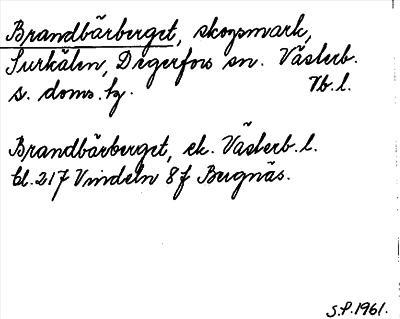 Brandbärberget, skogsmark,
Surkälen, Degerfors sn. Västerb.
s. doms. hg. Vb. l.
Brandbärberget, ek. Västerb. l.
bl. 217 Vindeln 8f Bergnäs.
S.P. 1961.